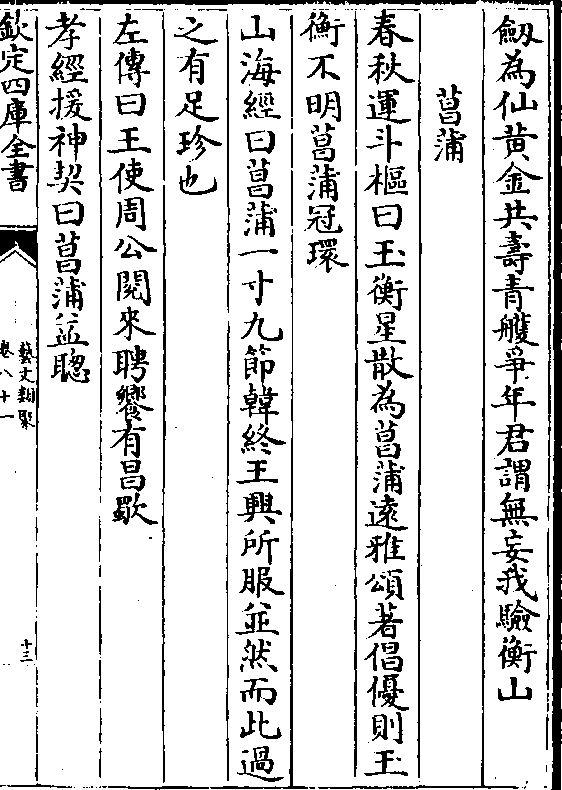 劒為仙黃金共壽青䕶爭年君謂無妄我驗衡山
菖蒲
春秋運斗樞曰玉衡星散為菖蒲遠雅頌著倡優則玉
衡不明菖蒲冠環
山海經曰菖蒲一寸九節韓終王興所服並然而此過
之有足珍也
左傳曰王使周公閱來聘饗有昌歜
孝經援神契曰菖蒲益聰
欽定四庫全書
藝文類聚
卷八十一
十三